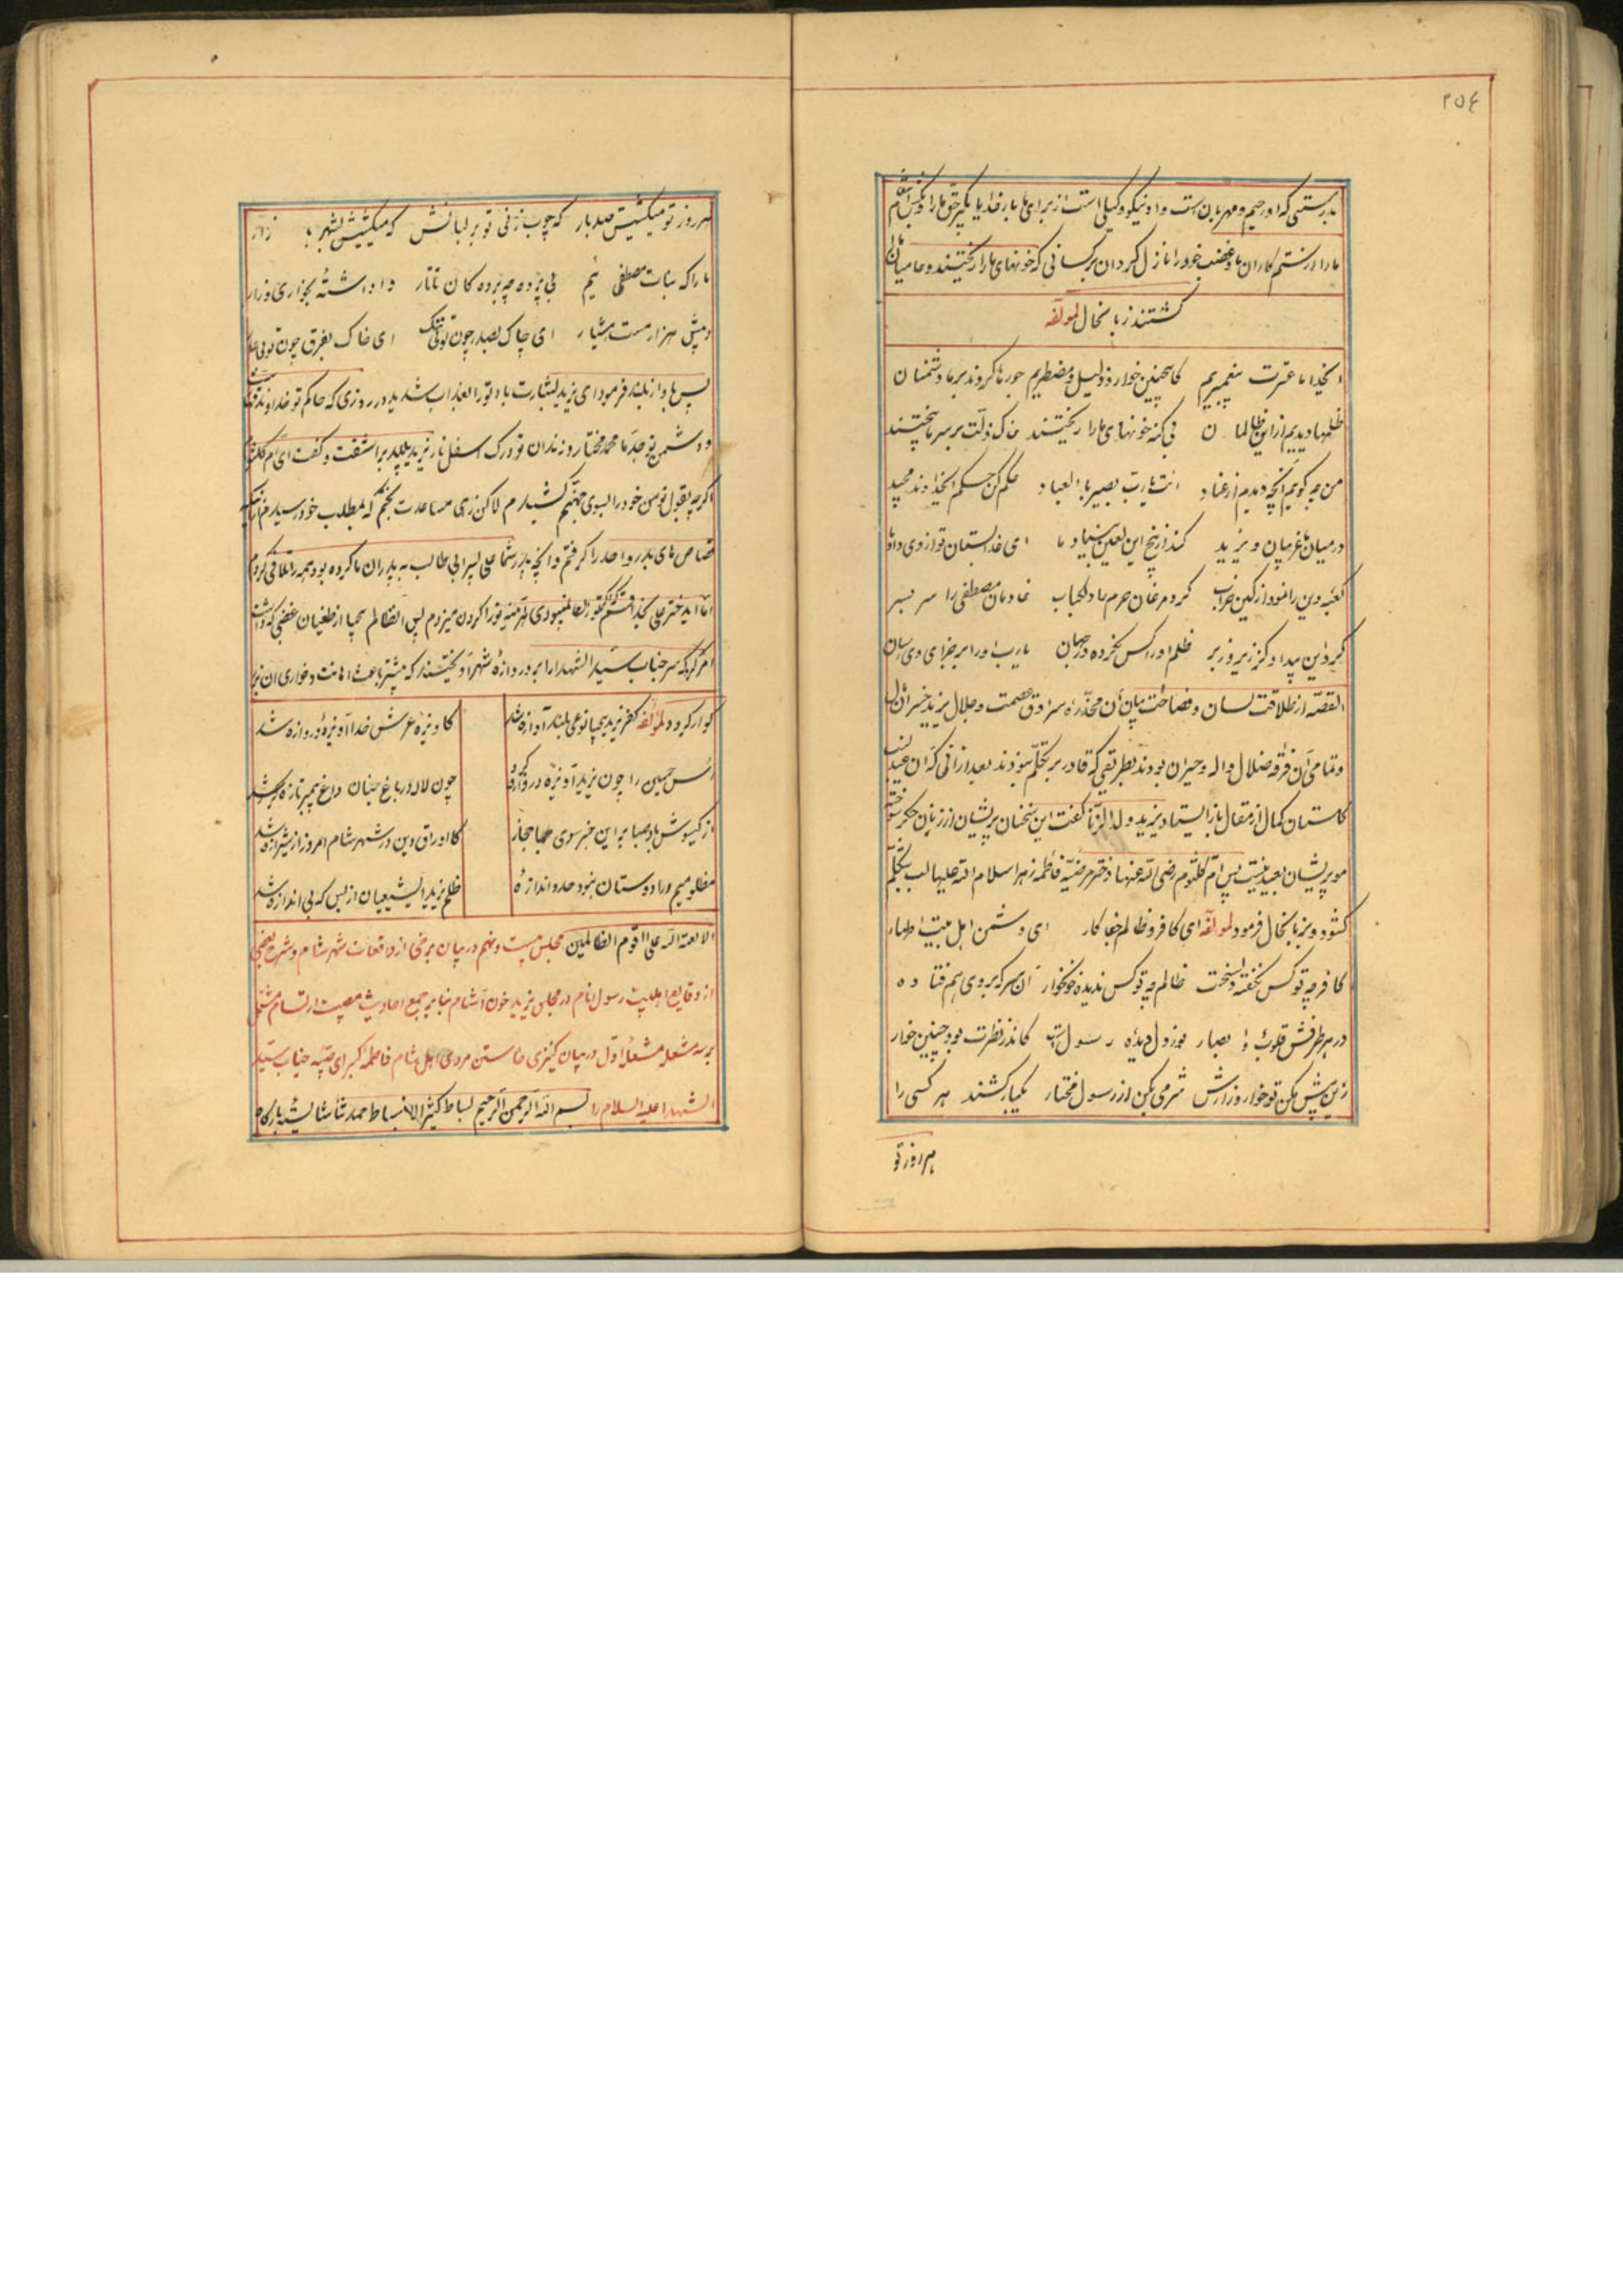 ٢٥٤
بدرستی که او رحیم و مهربان است و او نیکو وکیلی است از برای ما بار خدایا بگیر حق ما را و بکش انتقام
ما را از ستم کاران ما و غضب خود را نازل گردان بر کسانی که خونهای ما را ریختند و حامیان ما را
کشتند زبانحال لمؤلفه
ایخدا ما عترت پیغمبریم کاینچنین خوار و ذلیل و مضطریم جورها کردند بر ما دشمنان
ظلمها دیدیم از این ظالمان بی گنه خونهای ما را ریختند خاک ذلت بر سر ما بیختند
من چه گویم آنچه دیدم از عناد انت یا رب بصیر بالعباد حکم کن حکم ایخداوند مجید
در میان ما غریبان و یزید کند از بیخ این لعین بنیاد ما ای خدا بستان تو از وی داد ما
کعبه دین را نمود از کین خراب کرد مرغان حرم را دلکباب خاندان مصطفی را سر بسر
کرد این بیدادگر زیر و زبر ظلم او را کس نکرده در جهان یا رب او را بر جزای وی رسان
القصه از طلاقت لسان و فصاحت بیان آن مخدره سرادق عصمت و جلال یزید خسران مآل
و تمامی آن فرقه ضلال واله و حیران بودند بطریقی که قادر بر تکلم نبودند بعد از آنی که آن عندلیب
گلستان کمال از مقال باز ایستاد یزید ولد الزنا گفت این سخنان پریشان از زنان جگر سوخته
مو پریشان بعید نیست پس ام کلثوم رضی الله عنها دختر مرضیه فاطمه زهرا سلام الله علیها لب بتکلم
گشود و بزبانحال فرمود لمؤلفه ای کافر و ظالم جفا کار ای دشمن اهل بیت اطهار
کافر چو تو کس نگفته و سخت ظالم چو تو کس ندیده خونخوار آن سر که بروی هم فتاده
در هر طرفش قلوب و ابصار نور دل و دیده رسول است کاندر نظرت بود چنین خوار
زین پیش مکن تو خوار و زارش شرمی بکن از رسول مختار یکبار کشند هر کسی را
هر روز تو
هر روز تو میکشیش صد بار که چوب زنی تو بر لبانش که میکشیش بشهر زار
ما را که بنات مصطفی ایم بی پرده چو برده گان تاتار وا داشته بخواری و زار
پیش هزار مست هشیار ای چاک بصدر چون تو ای خاک بفرق چون توئی
پس باواز بلند فرمود ای یزید بشارت باد تو را بعذاب شدید در روزی که حاکم تو خداوند
و دشمن تو جد ما محمد مختار و زندان تو درک اسفل نار یزید پلید بر آشفت و گفت ای ام کلثوم
اگر چه بقول تو من خود را بسوی جهنم کشیدم لاکن زهی مساعدت بختم که بمطلب خود رسیدم
قصاص های بدر و احد را گرفتم و آنچه پدر شما علی پسر ابی طالب به پدران ما کرده بود همه را تلافی کردم
اما ایدختر علی بخدا قسم که اگر تو زن نمیبودی هر آینه تو را گردن میزدم پس آن ظالم بیحیا از طغیان غضبی که داشت
امر کرد که سر جناب سید الشهدا را بر دروازه شهر آویختند که بیشتر باعث اهانت و خواری آن بزر
گوار گردد لمؤلفه کفر یزید بیحیا نوعی بلند آوازه شد کاویزه عرش خدا آویزه دروازه شد
راس حسین را چون یزید آویزه دروازه کرد چون لاله در باغ جنان داغ پیمبر تازه شد
از گیسوش باد صبا بر این خبر سوی حجاز کاوراق دین در شهر شام امروز بی شیرازه شد
مظلومیم ور ادوستان نبود حد و اندازهٔ ظلم یزید ایشیعیان از بس که بی اندازه شد
الا لعنة الله علی القوم الظالمین مجلس بیست و نهم در بیان برخی از واقعات شهر شام و شرح بعضی
از وقایع اهلبیت رسول انام در مجلس یزید خون آشام بنابر جمع احادیث مصیبت ارتسام مشتمل
بر سه مشعل مشعل اول در بیان کنیزی خاستن مردی از اهل شام فاطمه کبرای صبیه جناب سید
الشهدا علیه السلام را بسم الله الرحمن الرحیم بساط کثیر الانبساط حمد و ثنا شایسته بارگاه